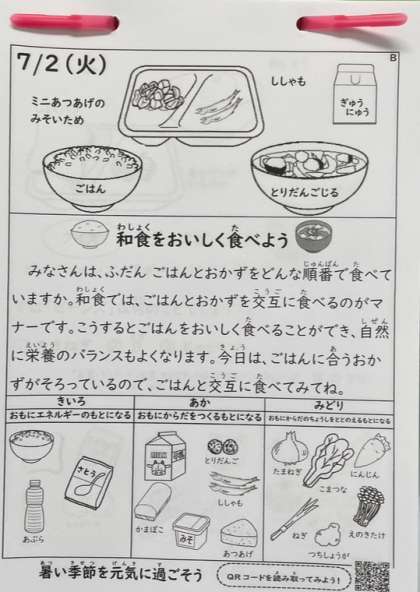 7/2(火)
B
ミニあつあげの
みそいため
ししゃも
ぎゅう
にゅう
ごはん
とりだんごじる
和食をおいしく食べよう
みなさんは、ふだん ごはんとおかずをどんな順番で食べて
いますか。和食では、ごはんとおかずを交互に食べるのがマ
ナーです。こうするとごはんをおいしく食べることができ、自然
に栄養のバランスもよくなります。今日は、ごはんに合うおか
ずがそろっているので、ごはんと交互に食べてみてね。
きいろ
おもにエネルギーのもとになる
さとう
あぶら
あか
おもにからだをつくるもとになる
とりだんご
ししゃも
かまぼこ
みそ
あつあげ
みどり
おもにからだのちょうしをととのえるもとになる
たまねぎ
こまつな
にんじん
ねぎ
つちしょうが
えのきたけ
暑い季節を元気に過ごそう
QRコードを読み取ってみよう!